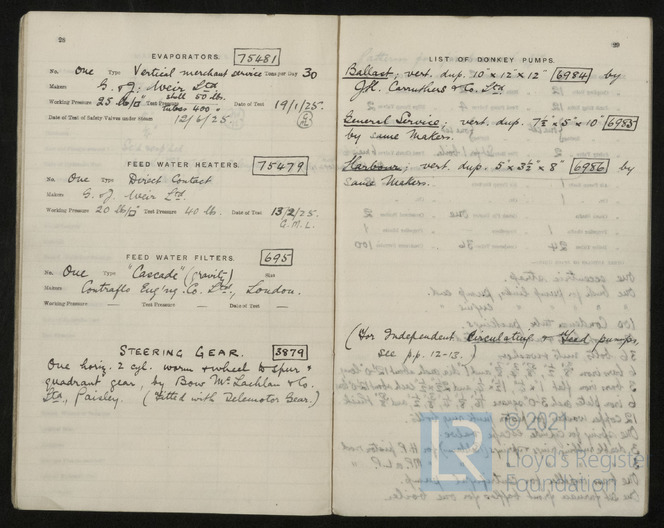 28
EVAPORATORS. 75481
No. One Type Vertical merchant service Tons per Day 30
Makers G. & J. Weir Ltd
Working Pressure 25 lb/□" Test Pressure shell 50 lbs. tubes 400 " Date of Test 19/1/25.
Date of Test of Safety Valves under steam 12/6/25
FEED WATER HEATERS. 75479
No. One Type Direct Contact
Makers G. & J. Weir Ltd.
Working Pressure 20 lb/□" Test Pressure 40 lb. Date of Test 13/2/25.
G.M.L.
FEED WATER FILTERS. 695
No. One Type "Cascade" (gravity) Size
Makers Contraflo Eng'ng. Co. Ltd., London.
Working Pressure — Test Pressure — Date of Test —
STEERING GEAR. 3879
One horiz. 2 cyl. worm & wheel & spur &
quadrant gear, by Bow McLachlan & Co.
Ltd., Paisley. (Fitted with Telemotor Gear.)
29
LIST OF DONKEY PUMPS.
Ballast; vert. dup. 10" x 12" x 12" 6984 by
J.H. Carruthers & Co. Ltd
General Service; vert. dup. 7½" x 5" x 10" 6985
by same Makers.
Harbour; vert. dup. 5" x 3½" x 8" 6986 by
same Makers.
(For Independent Circulating & Feed pumps,
see p.p. 12-13.)
LR
© 202
Lloyd's Register
Foundation